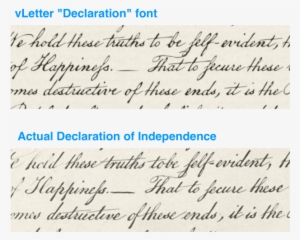 vLetter "Declaration" font
We hold these truths to be ſelf-evident, th
of Happineſs.— That to ſecure these
omes destructive of these ends, it is the
Actual Declaration of Independence
e hold these truths to be ſelf-evident, th
of Happineſs.— That to ſecure these
omes destructive of these ends, it is the